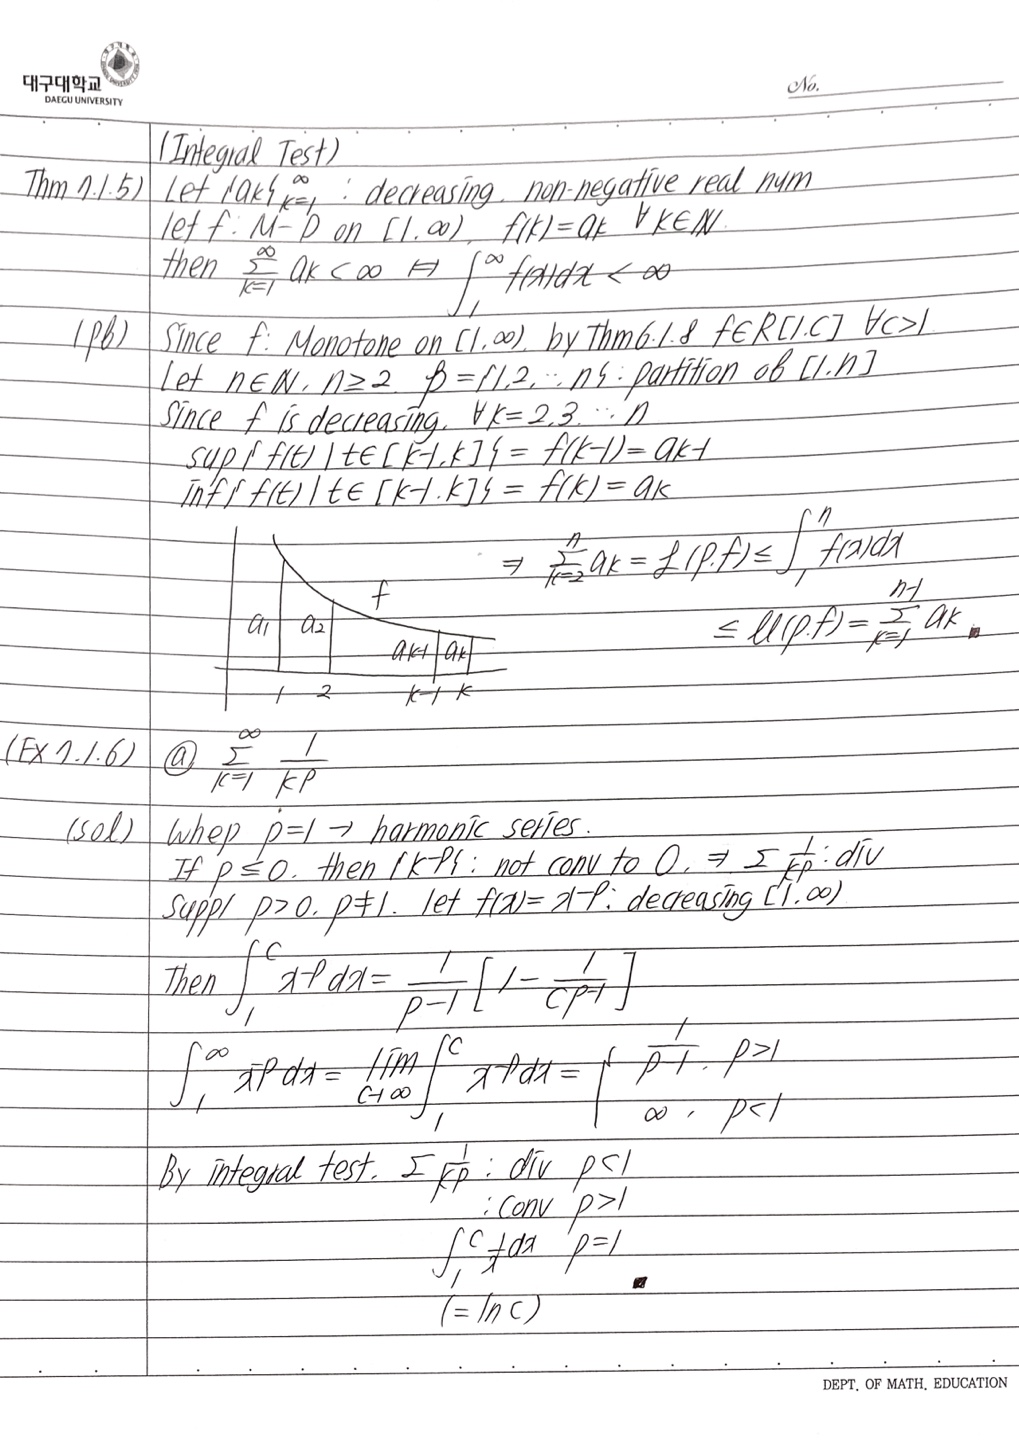 대구대학교
DAEGU UNIVERSITY
No.
(Integral Test)
Thm 7.1.5) Let {ak}∞k=1 : decreasing. non-negative real num
let f: M-D on [1.∞), f(k)=ak ∀k∈ℕ
then ∞Σk=1 ak<∞ ⇔ ∫₁^∞ f(x)dx<∞
(pf) Since f: Monotone on [1.∞), by Thm 6.1.8 f∈R[1.C] ∀c>1
Let n∈ℕ, n≥2 P={1,2,...n}: partition of [1.n]
Since f is decreasing, ∀k=2,3...n
sup{f(t)|t∈[k-1.k]}=f(k-1)=ak-1
inf{f(t)|t∈[k-1.k]}=f(k)=ak
⇒ nΣk=2 ak=𝓛(p.f)≤∫₁ⁿ f(x)dx
≤𝓤(p.f)=n-1Σk=1 ak.
f
a1 a2 ak-1 ak
1 2 k-1 k
(Ex 7.1.6) ⓐ ∞Σk=1 1/k^p
(sol) When p=1 → harmonic series.
If p≤0. then {k^-p}: not conv to 0. ⇒ Σ 1/k^p : div
Supp/ p>0. p≠1. let f(x)=x^-p: decreasing [1.∞)
Then ∫₁^C x^-p dx = 1/(p-1) [1 - 1/C^(p-1)]
∫₁^∞ x^-p dx = lim C→∞ ∫₁^C x^-p dx = { 1/(p-1). p>1
∞, p<1
By integral test. Σ 1/k^p : div p<1
: conv p>1
∫₁^C 1/x dx p=1
(= ln C)
DEPT. OF MATH. EDUCATION